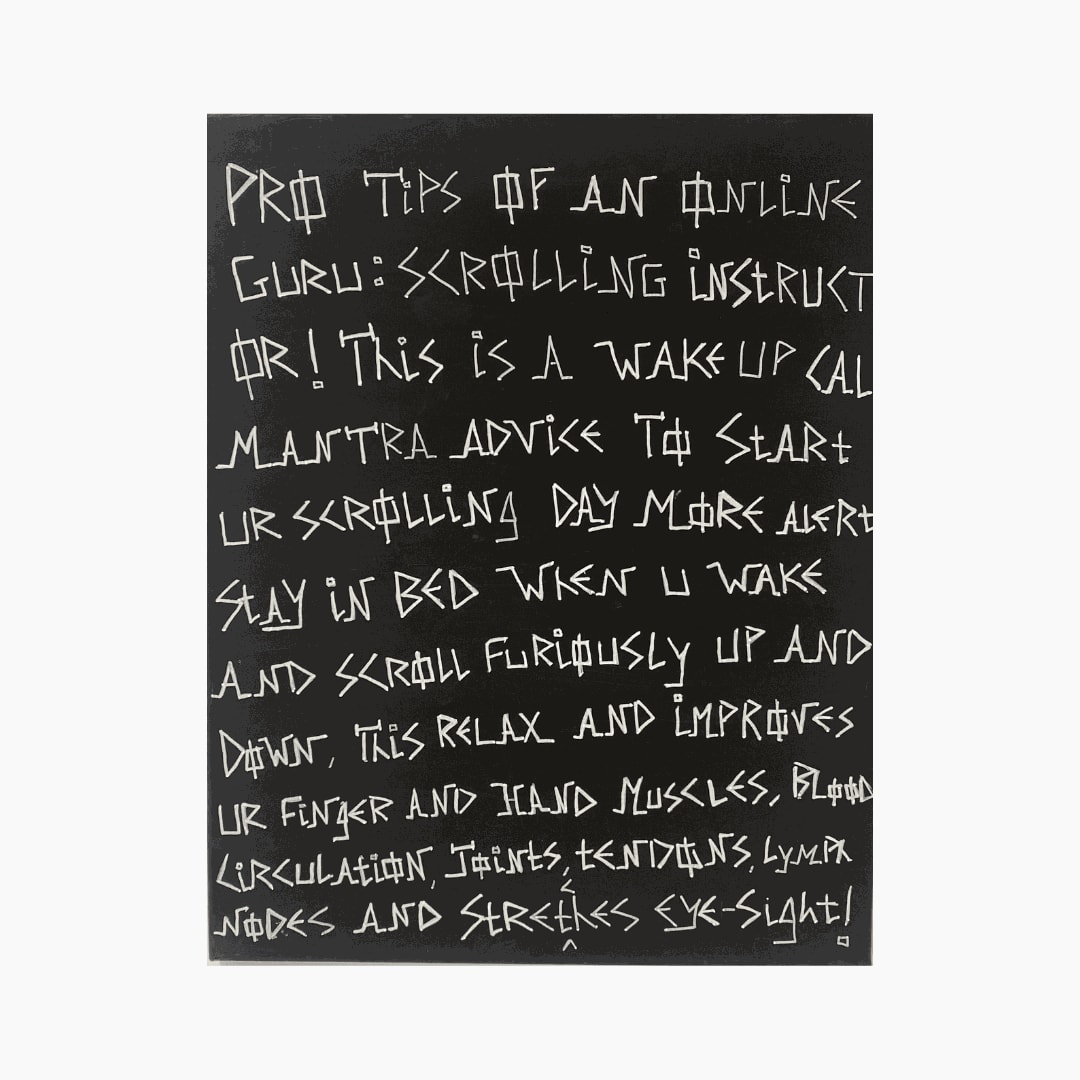 PRO TiPS OF AN ONLiNE
GURU: SCROLLiNG iNStRUCT
OR! ThiS iS A WAKE UP CAL
MANTRA ADViCE TO StARt
UR SCROLLiNg DAY MORE ALERt
StAY iN BED WhEN U WAKE
AND SCROLL FuRiOUSLy UP AND
DOWN, ThiS RELAX AND iMPROVES
UR FiNgER AND HAND MuSCLES, BLOOD
CiRCULAtiON, JOiNtS, tENDONS, LyMPh
NODES AND StREtChES EyE-Sight!